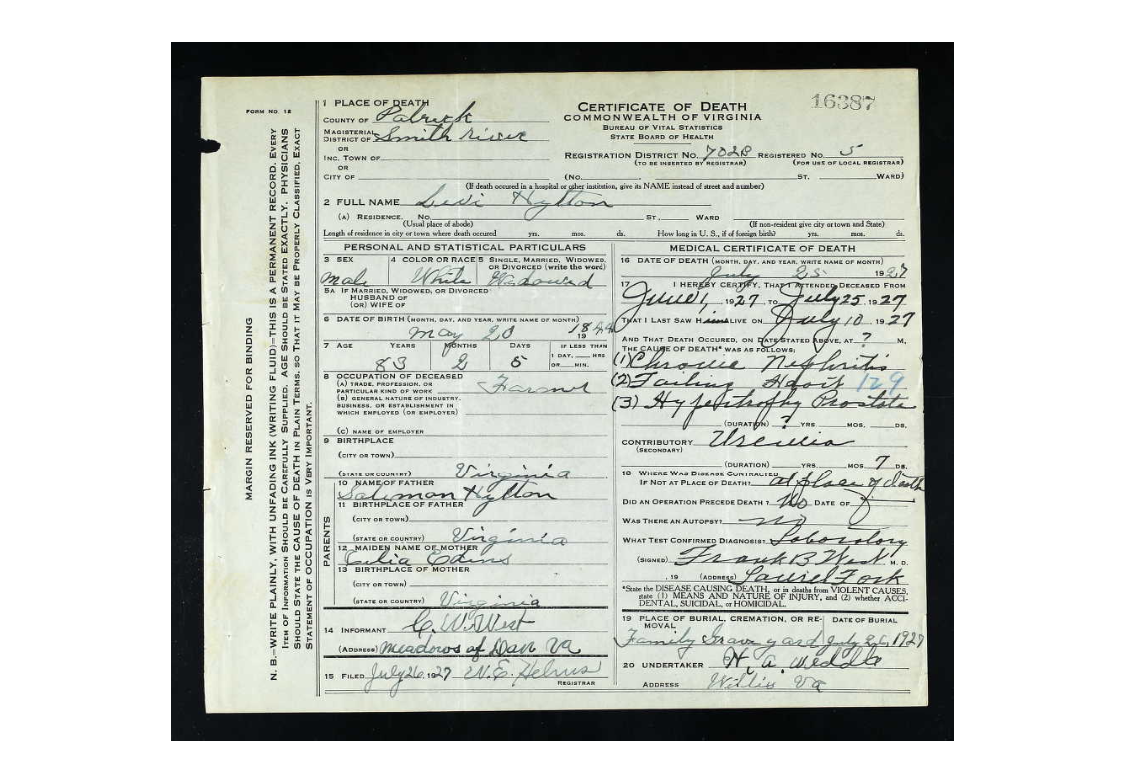 16387
FORM NO. 12
MARGIN RESERVED FOR BINDING
N. B.—WRITE PLAINLY, WITH UNFADING INK (WRITING FLUID)—THIS IS A PERMANENT RECORD. EVERY
ITEM OF INFORMATION SHOULD BE CAREFULLY SUPPLIED. AGE SHOULD BE STATED EXACTLY. PHYSICIANS
SHOULD STATE THE CAUSE OF DEATH IN PLAIN TERMS, SO THAT IT MAY BE PROPERLY CLASSIFIED. EXACT
STATEMENT OF OCCUPATION IS VERY IMPORTANT.
1 PLACE OF DEATH
COUNTY OF Patrick
MAGISTERIAL DISTRICT OF Smith River
OR
INC. TOWN OF
OR
CITY OF
CERTIFICATE OF DEATH
COMMONWEALTH OF VIRGINIA
BUREAU OF VITAL STATISTICS
STATE BOARD OF HEALTH
REGISTRATION DISTRICT NO. 702B REGISTERED NO. 5
(TO BE INSERTED BY REGISTRAR) (FOR USE OF LOCAL REGISTRAR)
(NO. ST. WARD)
(If death occured in a hospital or other institution, give its NAME instead of street and number)
2 FULL NAME Levi Hylton
(A) RESIDENCE. NO. ST., WARD
(Usual place of abode) (If non-resident give city or town and State)
Length of residence in city or town where death occured yrs. mos. ds. How long in U. S., if of foreign birth? yrs. mos. ds.
PERSONAL AND STATISTICAL PARTICULARS
3 SEX 4 COLOR OR RACE 5 SINGLE, MARRIED, WIDOWED, OR DIVORCED (write the word)
male White Widowed
5A IF MARRIED, WIDOWED, OR DIVORCED
HUSBAND OF
(OR) WIFE OF
6 DATE OF BIRTH (MONTH, DAY, AND YEAR, WRITE NAME OF MONTH)
May 20 1844
7 AGE YEARS MONTHS DAYS IF LESS THAN
1 DAY, HRS
OR MIN.
83 2 5
8 OCCUPATION OF DECEASED
(A) TRADE, PROFESSION, OR
PARTICULAR KIND OF WORK Farmer
(B) GENERAL NATURE OF INDUSTRY,
BUSINESS, OR ESTABLISHMENT IN
WHICH EMPLOYED (OR EMPLOYER)
(C) NAME OF EMPLOYER
9 BIRTHPLACE
(CITY OR TOWN)
(STATE OR COUNTRY) Virginia
PARENTS
10 NAME OF FATHER
Salomon Hylton
11 BIRTHPLACE OF FATHER
(CITY OR TOWN)
(STATE OR COUNTRY) Virginia
12 MAIDEN NAME OF MOTHER
13 BIRTHPLACE OF MOTHER
(CITY OR TOWN)
(STATE OR COUNTRY) Virginia
14 INFORMANT C. W. West
(ADDRESS) Meadows of Dan Va
15 FILED July 26, 1927 W. E. Helms
REGISTRAR
MEDICAL CERTIFICATE OF DEATH
16 DATE OF DEATH (MONTH, DAY, AND YEAR, WRITE NAME OF MONTH)
July 25 1927
17 I HEREBY CERTIFY, THAT I ATTENDED DECEASED FROM
June 1, 1927 TO July 25, 1927
THAT I LAST SAW HIM ALIVE ON July 10 1927
AND THAT DEATH OCCURED, ON DATE STATED ABOVE, AT ? M.
THE CAUSE OF DEATH* WAS AS FOLLOWS:
(1) Chronic Nephritis
(2) Failing Heart 129
(3) Hypertrophy Prostate
(DURATION) ? YRS MOS. DS.
CONTRIBUTORY Uremia
(SECONDARY)
(DURATION) YRS MOS 7 DS.
18 WHERE WAS DISEASE CONTRACTED
IF NOT AT PLACE OF DEATH? at place of death
DID AN OPERATION PRECEDE DEATH? No DATE OF
WAS THERE AN AUTOPSY? no
WHAT TEST CONFIRMED DIAGNOSIS? Laboratory
(SIGNED) Frank B West M. D.
, 19 (ADDRESS) Laurel Fork
*State the DISEASE CAUSING DEATH, or in deaths from VIOLENT CAUSES,
state (1) MEANS AND NATURE OF INJURY, and (2) whether ACCI-
DENTAL, SUICIDAL, or HOMICIDAL.
19 PLACE OF BURIAL, CREMATION, OR RE-
MOVAL DATE OF BURIAL
Family Grave yard July 26, 1927
20 UNDERTAKER H. A. Weddle
ADDRESS Willis Va